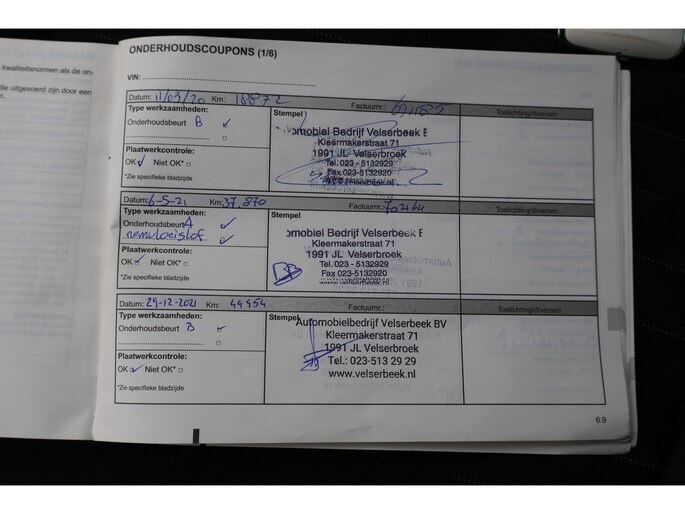 kwaliteitsnormen als de on-
die uitgevoerd zijn door een
ONDERHOUDSCOUPONS (1/6)
VIN:
Datum: 11/03/20 Km: 18872 Factuurnr.: Toelichting/diversen
Type werkzaamheden: Stempel
Onderhoudsbeurt B
Automobiel Bedrijf Velserbeek
Kleermakerstraat 71
1991 JL Velserbroek
Tel. 023 - 5132929
Fax 023-5132920
Plaatwerkcontrole:
OK Niet OK*
*Zie specifieke bladzijde
Datum: 6-5-21 Km: 37.870 Factuurnr.: Toelichting/diversen
Type werkzaamheden: Stempel
Onderhoudsbeurt A
remvloeistof
omobiel Bedrijf Velserbeek
Kleermakerstraat 71
1991 JL Velserbroek
Tel. 023 - 5132929
Fax 023-5132920
www.velserbeek.nl
Plaatwerkcontrole:
OK Niet OK*
*Zie specifieke bladzijde
Datum: 29-12-2021 Km: 49954 Factuurnr.: Toelichting/diversen
Type werkzaamheden: Stempel
Onderhoudsbeurt B
Automobielbedrijf Velserbeek BV
Kleermakerstraat 71
1991 JL Velserbroek
Tel.: 023-513 29 29
www.velserbeek.nl
Plaatwerkcontrole:
OK Niet OK*
*Zie specifieke bladzijde
6.9